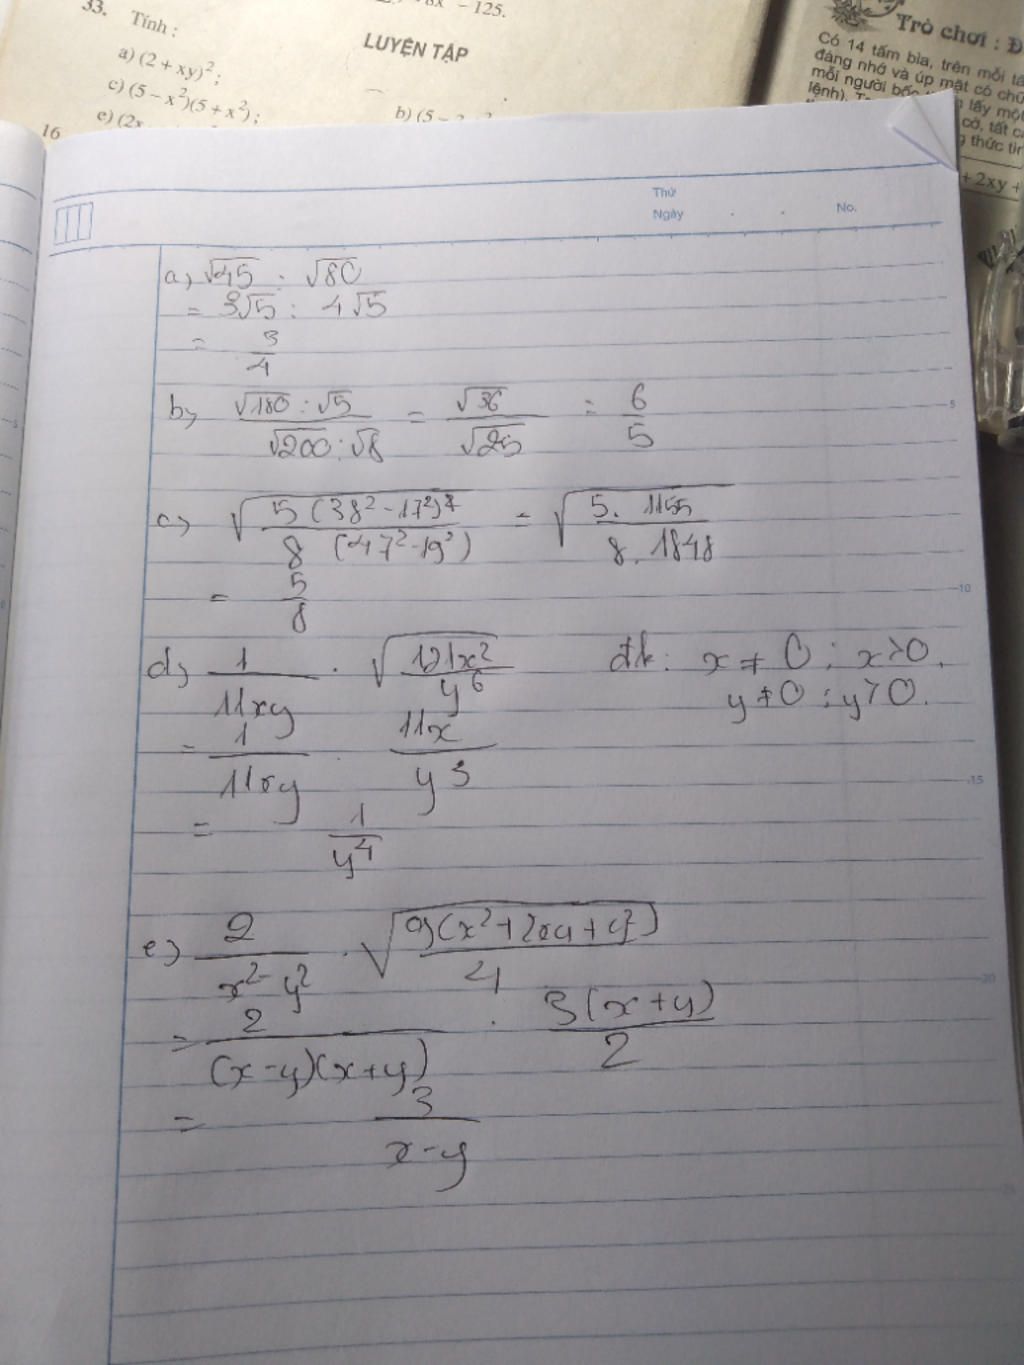 8x - 125.
33. Tính :
LUYỆN TẬP
a) (2 + xy)²;
c) (5 - x²)(5 + x²);
b) (5 -
e) (2x
16
Trò chơi : Đ
Có 14 tấm bìa, trên mỗi tấ
đáng nhớ và úp mặt có chữ
mỗi người bốc
lấy một
lệnh).
cờ, tất c
thức tìr
+ 2xy +
Thứ
Ngày . . No.
a, √45 : √80
= 3√5 : 4√5
= 3/4
b, (√180 : √5)/(√200 : √8) = √36/√25 = 6/5
c, √(5(38² - 17²)/8(47² - 19²)) = √(5. 1155/8. 1848)
= 5/8
d, 1/11xy . √(121x²/y⁶) đk: x ≠ 0 ; x > 0.
y ≠ 0 ; y > 0.
= 1/11xy . 11x/y³
= 1/y⁴
e) 2/(x² - y²) . √(9(x² + 2xy + y²)/4)
= 2/((x - y)(x + y)) . 3(x + y)/2
= 3/(x - y)
5
10
15
20
25